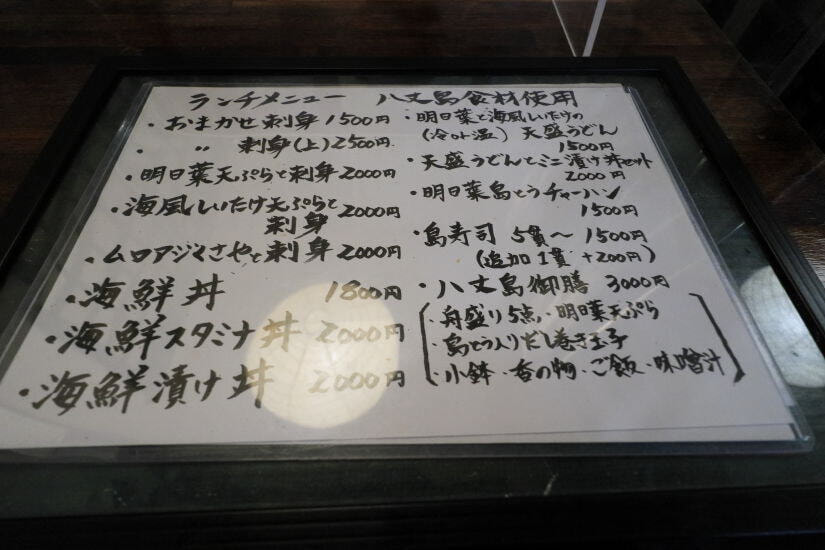 ランチメニュー 八丈島食材使用
・おまかせ刺身 1500円
・ 〃 刺身(上) 2500円
・明日葉天ぷらと刺身 2000円
・海風しいたけ天ぷらと
刺身 2000円
・ムロアジくさやと刺身 2000円
・海鮮丼 1800円
・海鮮スタミナ丼 2000円
・海鮮漬け丼 2000円
・明日葉と海風しいたけの
(冷or温) 天盛うどん
1500円
・天盛うどんとミニ漬け丼セット
2000円
・明日葉島とうチャーハン
1500円
・島寿司 5貫〜 1500円
(追加1貫 +200円)
・八丈島御膳 3000円
・舟盛り5点・明日葉天ぷら
・島とう入りだし巻き玉子
・小鉢・香の物・ご飯・味噌汁